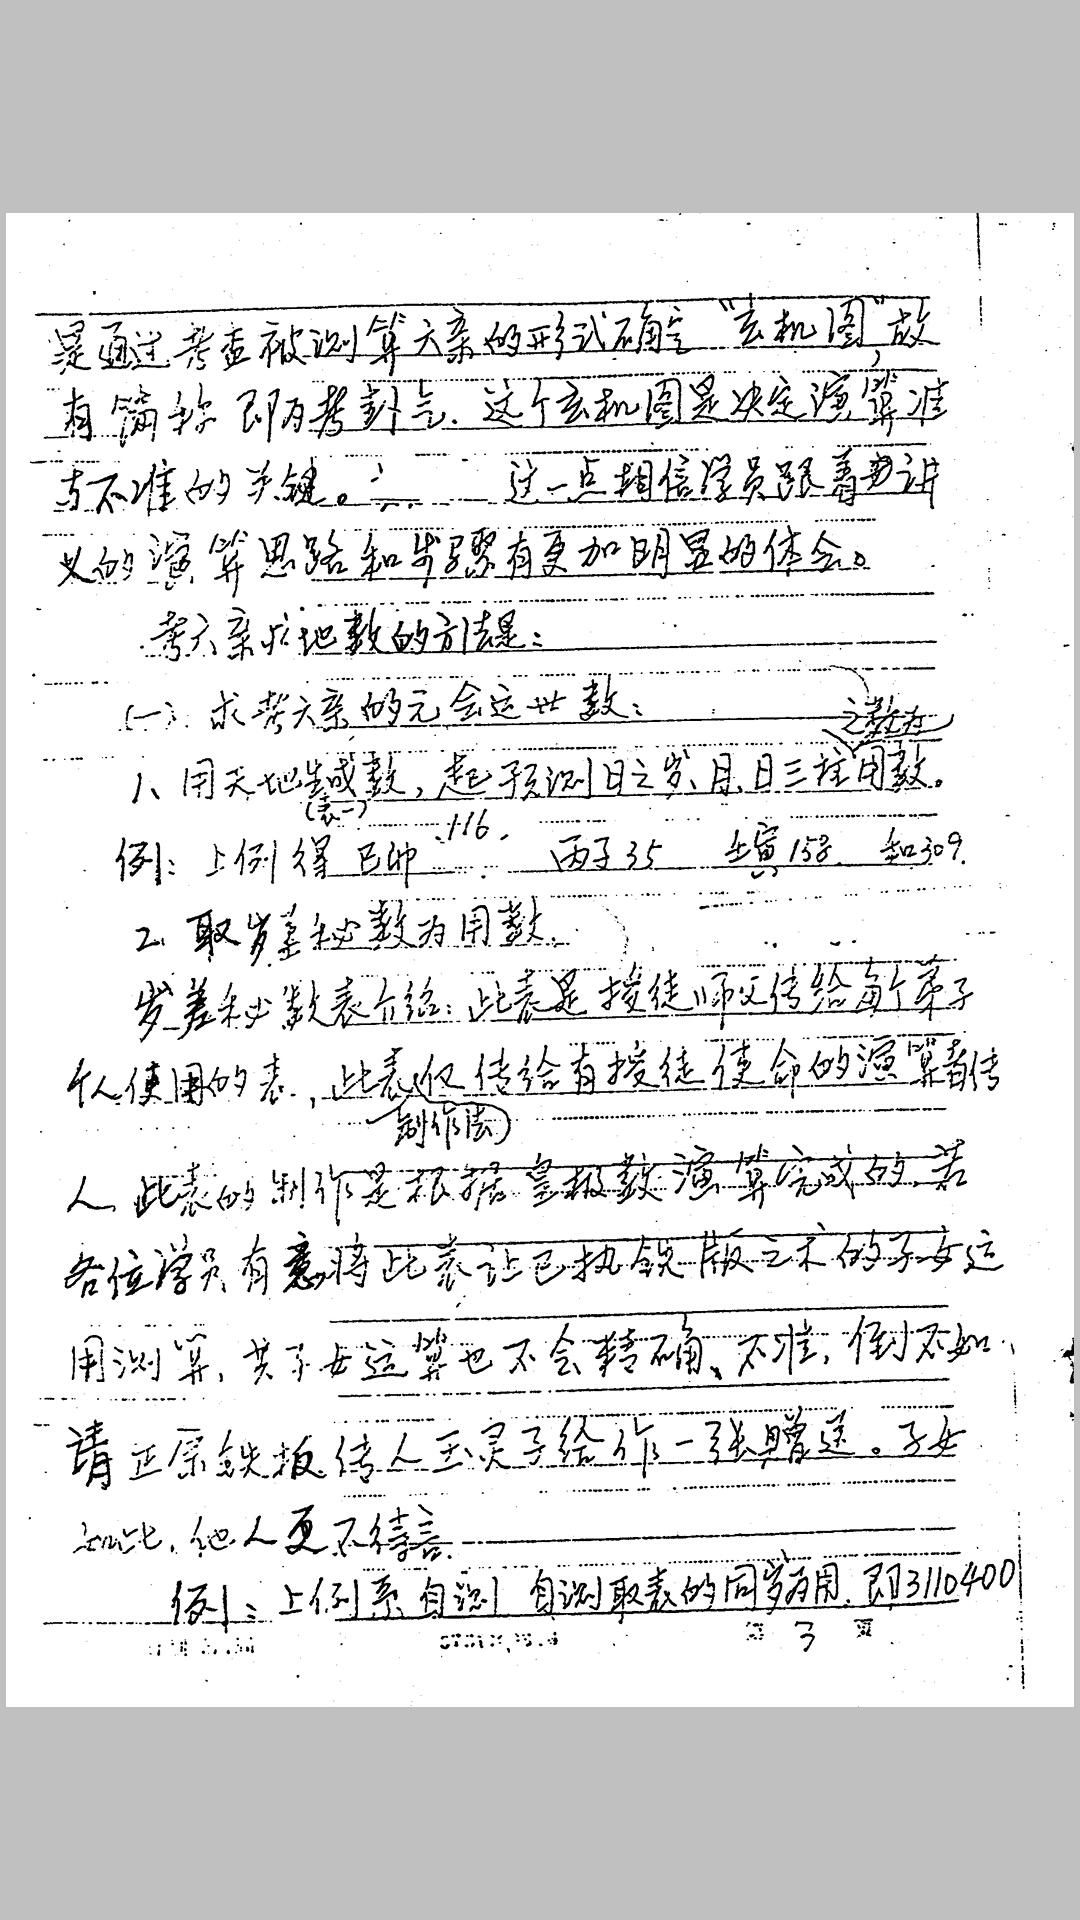 是通过考查被测算六亲的形式确定“玄机图”,故
有简称即为考卦气.这个玄机图是决定演算准
与不准的关键。 这一点相信学员跟着讲
义的演算思路和步骤有更加明显的体会。
考六亲点地数的方法是:
(一).求考六亲的元会运世数:
之数为
1、用天地生成数,起予测日之岁、月、日三柱用数。
(表一)
例:上例得己卯116. 丙子35 壬寅158. 和309.
2.取岁差秘数为用数.
岁差秘数表介绍:此表是授徒师父传给每个弟子
个人使用的表,此表仅传给有授徒使命的演算者传
制作法
人.此表的制作是根据皇极数演算完成的.若
各位学员有意将此表让已执铁版之术的子女运
用测算,其子女运算也不会精确、不准,倒不如
请正宗铁板传人玉灵子给作一张赠送。子女
如此,他人更不待言.
例:上例系自测自测取表的同岁为用.即3110400
第 3 页